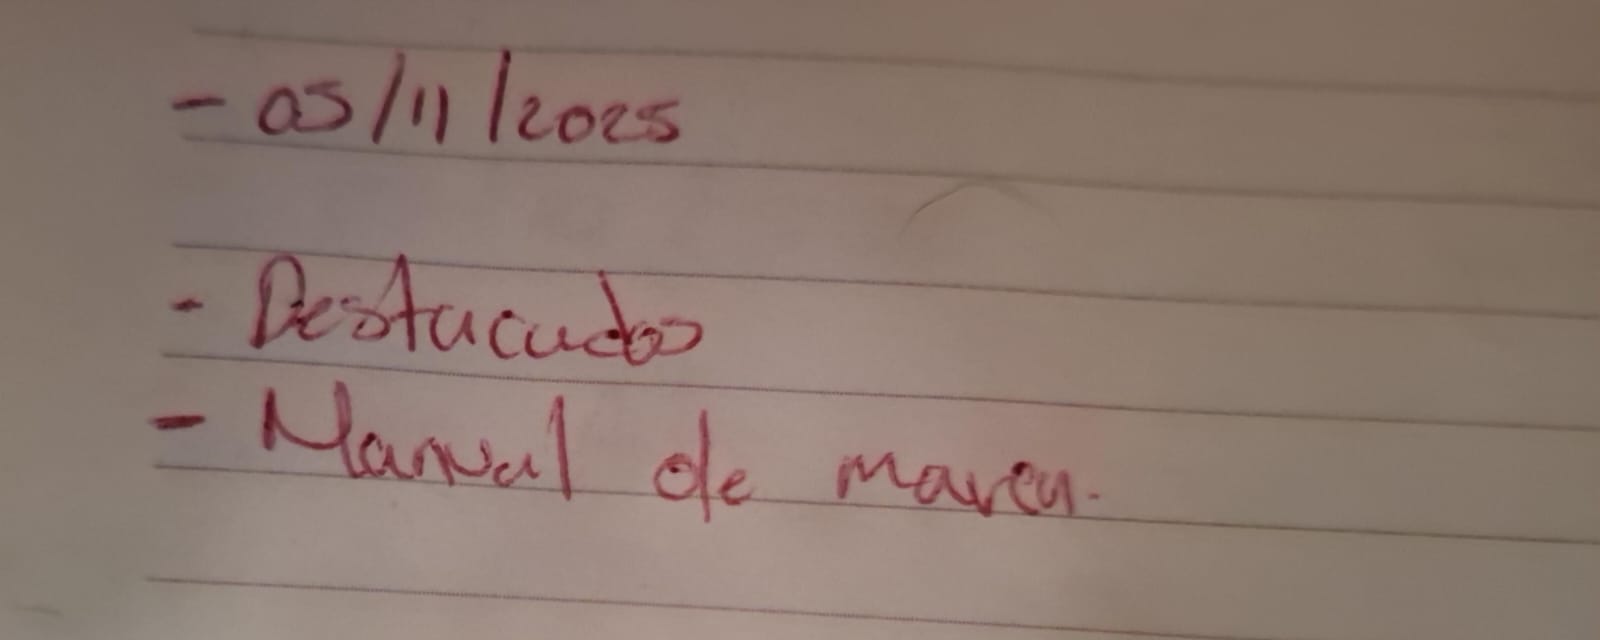 - 05/11/2025
- Destacados
- Manual de marca.